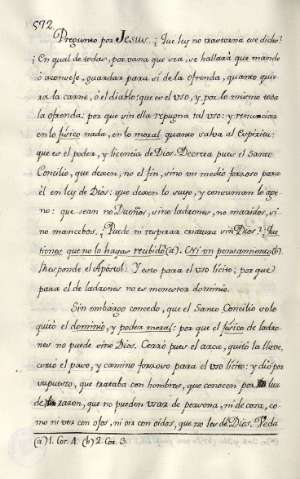 572
Pregunto por Jesus. ¿Que ley no trastorna este dicho?
¿En qual de todas, por vana que sea, se hallará que mande
ó aconseje, guardar para sí de la ofrenda, quanto quie-
ra la carne, ó el diablo: que es el uso, y por lo mismo toda
la ofrenda: por que sin ella repugna tal uso: y renunciar
en lo fisico nada, en lo moral quanto valga al Espiritu:
que es el poder, y licencia de Dios. Decreta pues el Santo
Concilio, que dexen, no el fin, sino un medio forzoso para
él en ley de Dios: que dexen lo suyo, y consuman lo age-
no: que sean no Dueños, sino ladrones, no maridos, si-
no mancebos. ¿Puede ni respirar criatura sin Dios? ¿Que
tienes que no lo hayas recibido (a). ¿Ni un pensamiento (b)
Responde el Apostol. Y esto para el uso licito; por que
para el de ladrones no es menester dominio.
Sin embargo concedo, que el Santo Concilio solo
quitó el dominio, y poder moral: por que el fisico de ladro-
nes no puede sino Dios. Cerró pues el arca, quitó la llave,
curió el paso, y camino forzoso para el uso licito: y dió por
supuesto, que trataba con hombres, que conocen por luz
de razon, que no pueden usar de persona, ni de cosa, co-
mo ni ver con ojos, ni oir con oidos, que no les dé Dios. Pida
(a) 1. Cor. 4. (b) 2. Cor. 3.